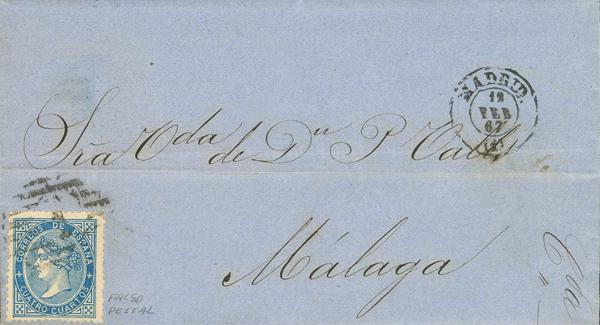 MADRID.
12
FEB
67
(2)
Sra V.da de Dn P Valls
Málaga
CORREOS DE ESPAÑA
CUATRO CUARTOS
FALSO
POSTAL